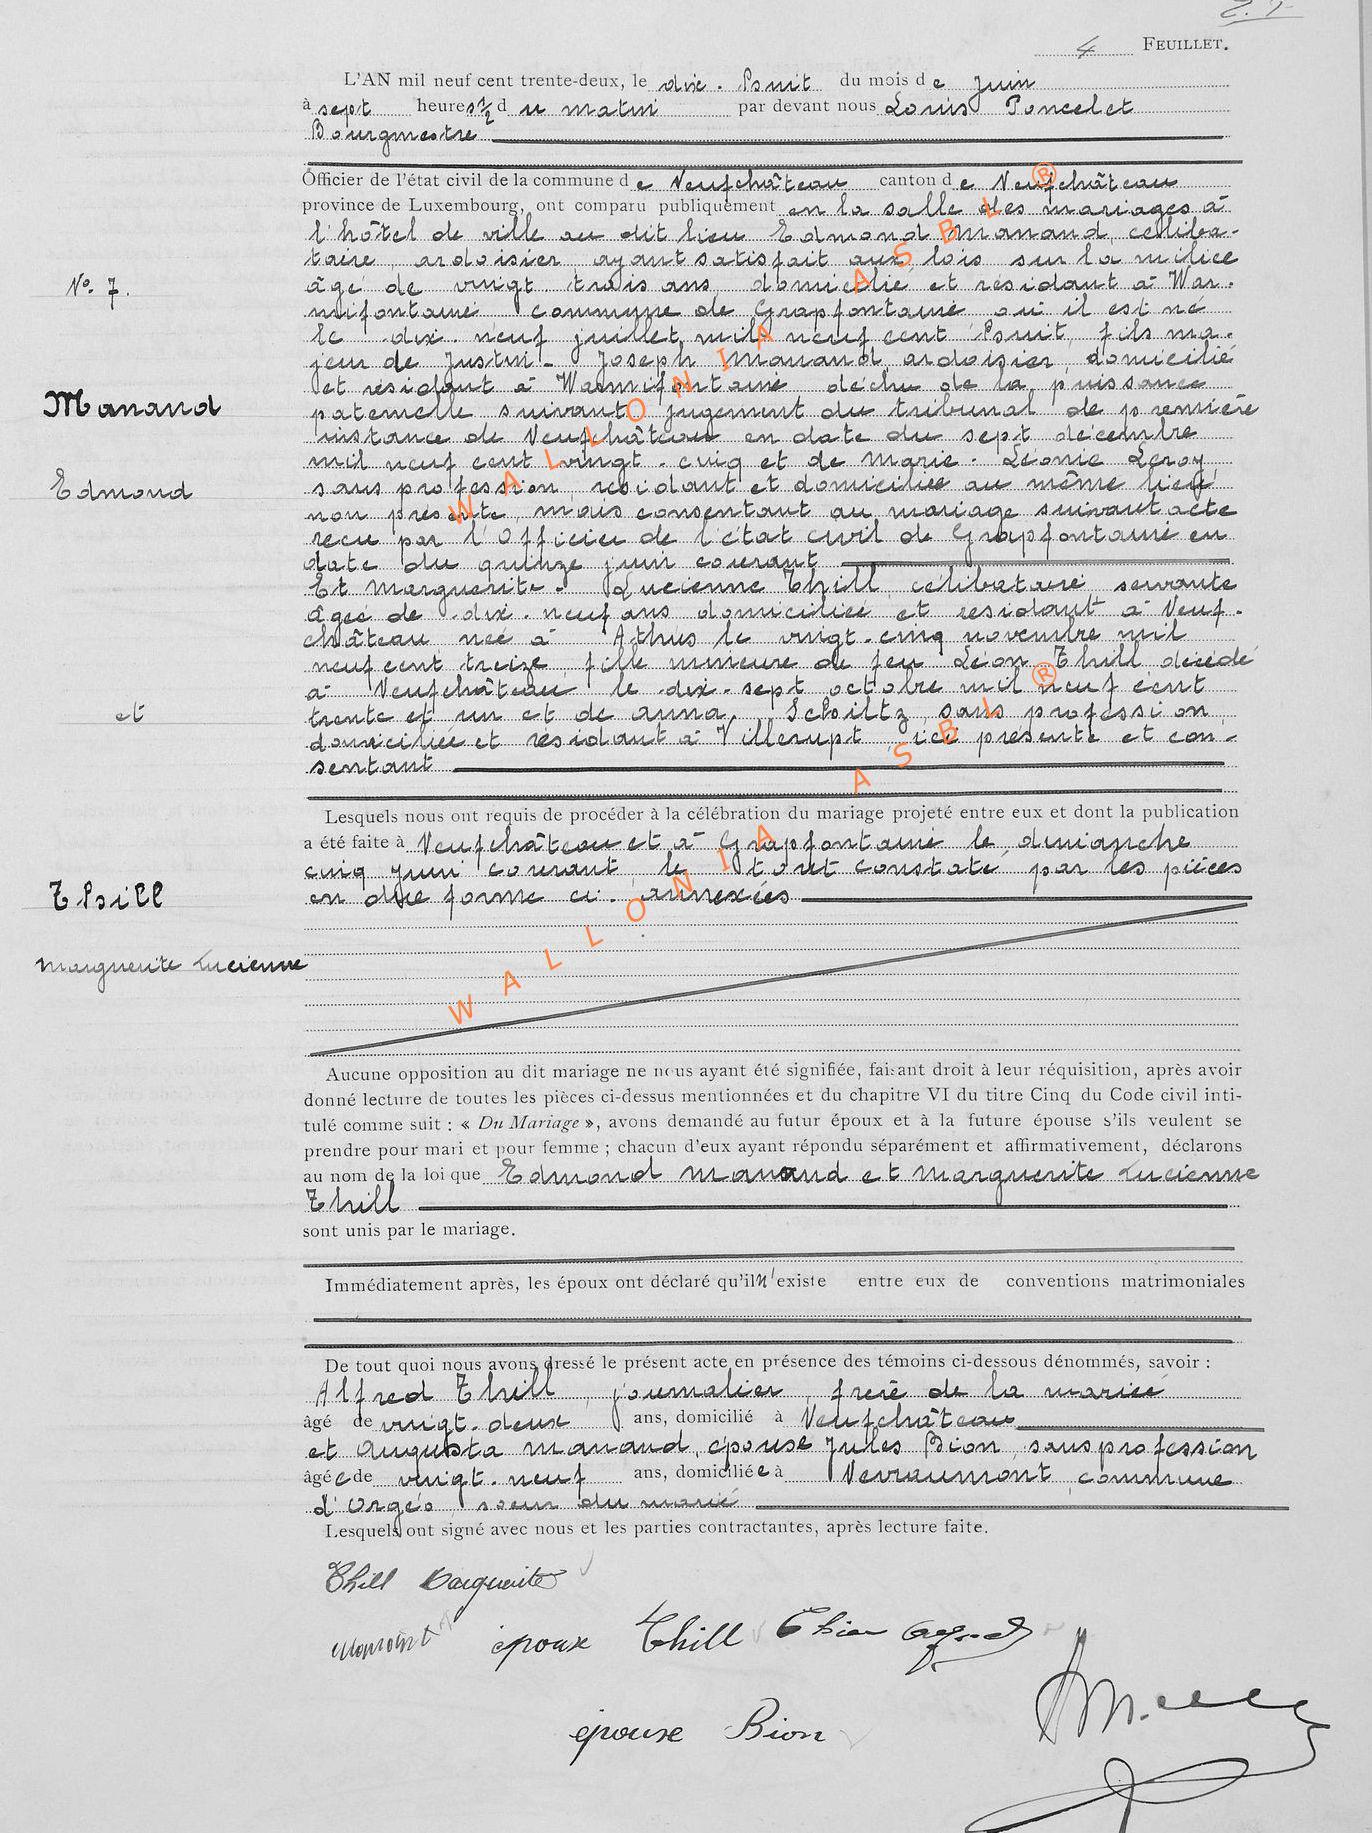 4 FEUILLET.
L'AN mil neuf cent trente-deux, le dix-huit du mois de Juin
à sept heures ½ du matin par devant nous Louis Poncelet
Bourgmestre
Officier de l'état civil de la commune de Neufchâteau canton de Neufchâteau
province de Luxembourg, ont comparu publiquement en la salle des mariages à
l'hôtel de ville au dit lieu Edmond Manand, céliba-
taire, ardoisier, ayant satisfait aux lois sur la milice
âgé de vingt trois ans, domicilié et résidant à War-
mifontaine commune de Grapfontaine où il est né
le dix-neuf juillet mil neuf cent huit, fils ma-
jeur de Justin-Joseph Manand, ardoisier, domicilié
et résidant à Warmifontaine déchu de la puissance
paternelle suivant jugement du tribunal de première
instance de Neufchâteau en date du sept décembre
mil neuf cent vingt-cinq et de Marie-Léonie Leroy,
sans profession, résidant et domiciliée au même lieu
non présente mais consentant au mariage suivant acte
reçu par l'Officier de l'état civil de Grapfontaine en
date du quinze juin courant
Et Marguerite-Lucienne Thill, célibataire, servante
âgée de dix-neuf ans domiciliée et résidant à Neuf-
château née à Athus le vingt-cinq novembre mil
neuf cent treize, fille mineure de feu Léon Thill décédé
à Neufchâteau le dix-sept octobre mil neuf cent
trente et un et de Anna Schiltz, sans profession,
domiciliée et résidant à Villerupt ici présente et con-
sentant
No. 7.
Manand
Edmond
et
Thill
Marguerite Lucienne
Lesquels nous ont requis de procéder à la célébration du mariage projeté entre eux et dont la publication
a été faite à Neufchâteau et à Grapfontaine le dimanche
cinq juin courant, le tout constaté par les pièces
en due forme ci-annexées
Aucune opposition au dit mariage ne nous ayant été signifiée, faisant droit à leur réquisition, après avoir
donné lecture de toutes les pièces ci-dessus mentionnées et du chapitre VI du titre Cinq du Code civil inti-
tulé comme suit : « Du Mariage », avons demandé au futur époux et à la future épouse s'ils veulent se
prendre pour mari et pour femme ; chacun d'eux ayant répondu séparément et affirmativement, déclarons
au nom de la loi que Edmond Manand et Marguerite Lucienne
Thill
sont unis par le mariage.
Immédiatement après, les époux ont déclaré qu'il n'existe entre eux de conventions matrimoniales
De tout quoi nous avons dressé le présent acte en présence des témoins ci-dessous dénommés, savoir :
Alfred Thill, journalier, frère de la mariée
âgé de vingt-deux ans, domicilié à Neufchâteau
et Augusta Manand, épouse Jules Bion, sans profession
âgée de vingt-neuf ans, domiciliée à Nevraumont, commune
d'Orgéo, soeur du marié
Lesquels ont signé avec nous et les parties contractantes, après lecture faite.
Thill Marguerite
épouse Thill
épouse Bion
WALLONIA ASBL ®
WALLONIA ASBL ®